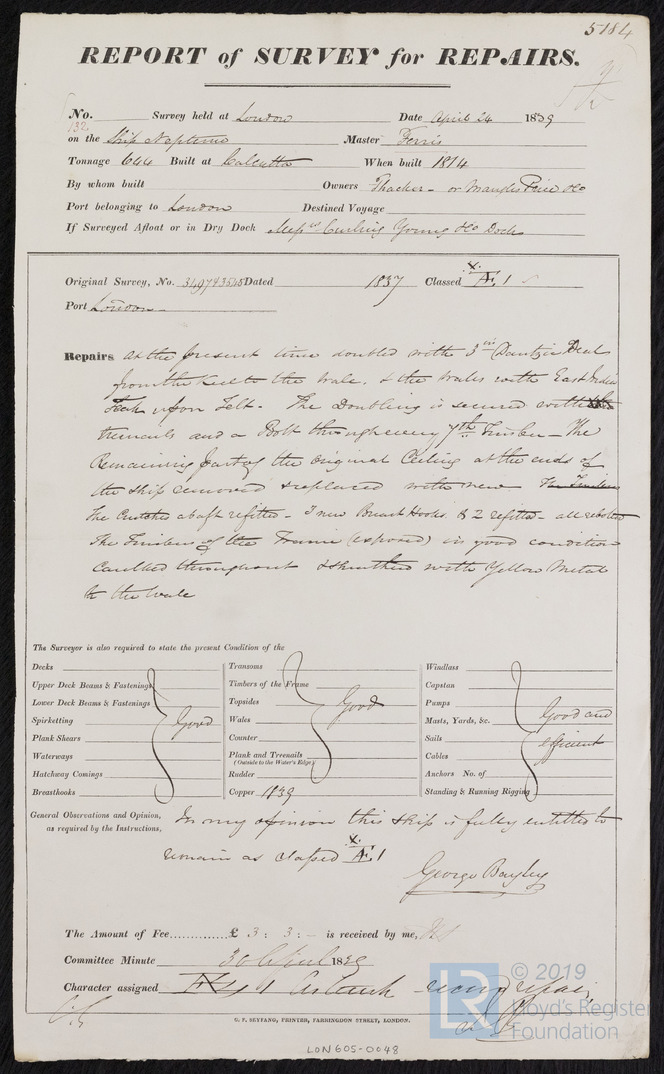 5184
REPORT of SURVEY for REPAIRS.
No. 132 Survey held at London Date April 24 1839
on the Ship Neptune Master Ferris
Tonnage 644 Built at Calcutta When built 1814
By whom built Owners Thacker - or Mangles Price &Co
Port belonging to London Destined Voyage
If Surveyed Afloat or in Dry Dock Messrs Curling Young &Co Dock
Original Survey, No. Dated 1837 Classed Æ 1
Port London
Repairs as the present time doubled with 3 in Dantzic Deals
from the keel to the wale. & the wales with East India
Teak upon Felt. The Doubling is secured with
treenails and a Bolt through every 7th Timber - The
Remaining part of the original Ceiling at the ends of
the ship removed & replaced with new The Timbers
The Crutches abaft refitted - 7 new Breast Hooks & 2 refitted - all rebolted
The Timbers of the Frame (exposed) in good condition
Caulked throughout & sheathed with Yellow Metal
to the wale
The Surveyor is also required to state the present Condition of the
Decks
Upper Deck Beams & Fastenings
Lower Deck Beams & Fastenings
Spirketting
Plank Shears
Waterways
Hatchway Comings
Breasthooks
Good
Transoms
Timbers of the Frame
Topsides
Wales
Counter
Plank and Treenails
(Outside to the Water's Edge)
Rudder
Copper 1839
Good
Windlass
Capstan
Pumps
Masts, Yards, &c.
Sails
Cables
Anchors No. of
Standing & Running Rigging
Good and
efficient
General Observations and Opinion,
as required by the Instructions,
In my opinion this ship is fully entitled to
remain as classed Æ 1
George Bayley
The Amount of Fee..............£ 3 : 3 : - is received by me,
Committee Minute 30 April 1839
Character assigned
G. F. SEYFANG, PRINTER, FARRINGDON STREET, LONDON.
LR © 2019
Lloyd's Register
Foundation
LON605-0048